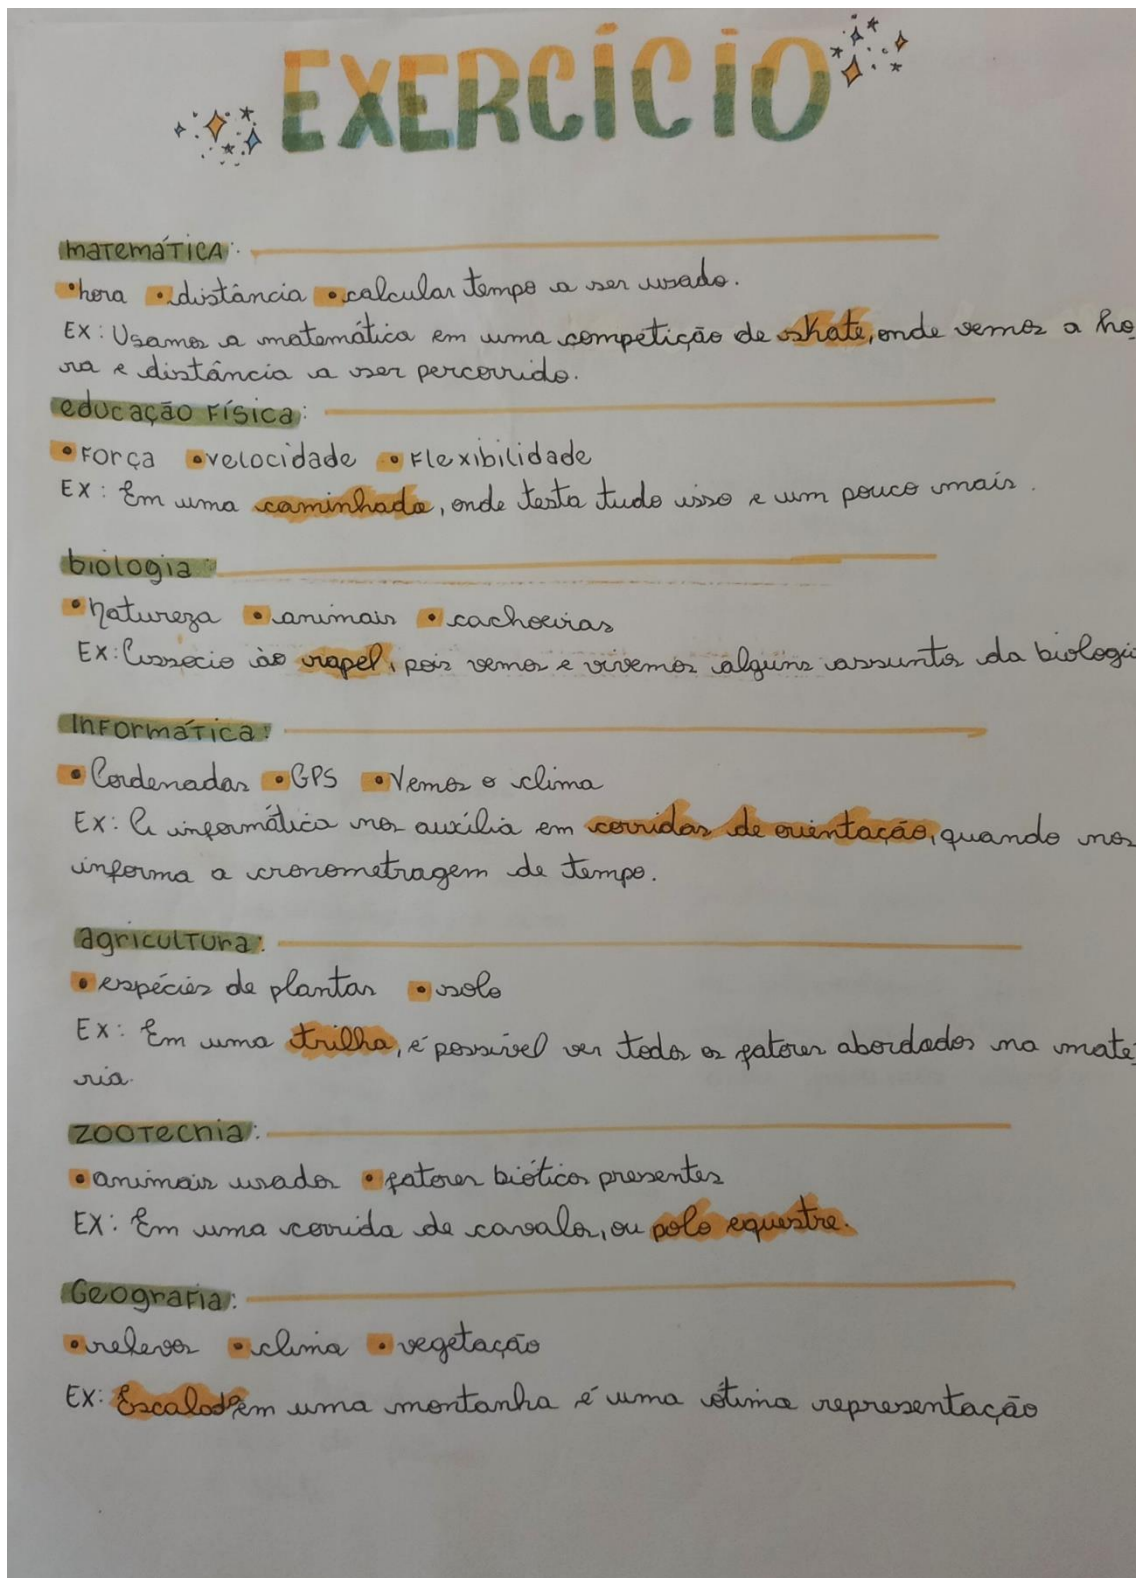 EXERCÍCIO
matemática:
•hora •distância •calcular tempo a ser usado.
Ex: Usamos a matemática em uma competição de skate, onde vemos a ho-
ra e distância a ser percorrido.
educação Física:
•Força •velocidade •Flexibilidade
Ex: Em uma caminhada, onde testa tudo isso e um pouco mais.
biologia:
•Natureza •animais •cachoeiras
Ex: Associo ao rapel, pois vemos e vivemos alguns assuntos da biologia
Informática:
•Cordenadas •GPS •Vemos o clima
Ex: A informática nos auxília em corridas de orientação, quando nos
informa a cronometragem de tempo.
agricultura:
•espécies de plantas •solo
Ex: Em uma trilha, é possível ver todos os fatores abordados na maté-
ria.
ZOOTecnia:
•animais usados •fatores bióticos presentes
Ex: Em uma corrida de cavalos, ou polo equestre.
Geografia:
•relevos •clima •vegetação
Ex: Escalada em uma montanha é uma ótima representação